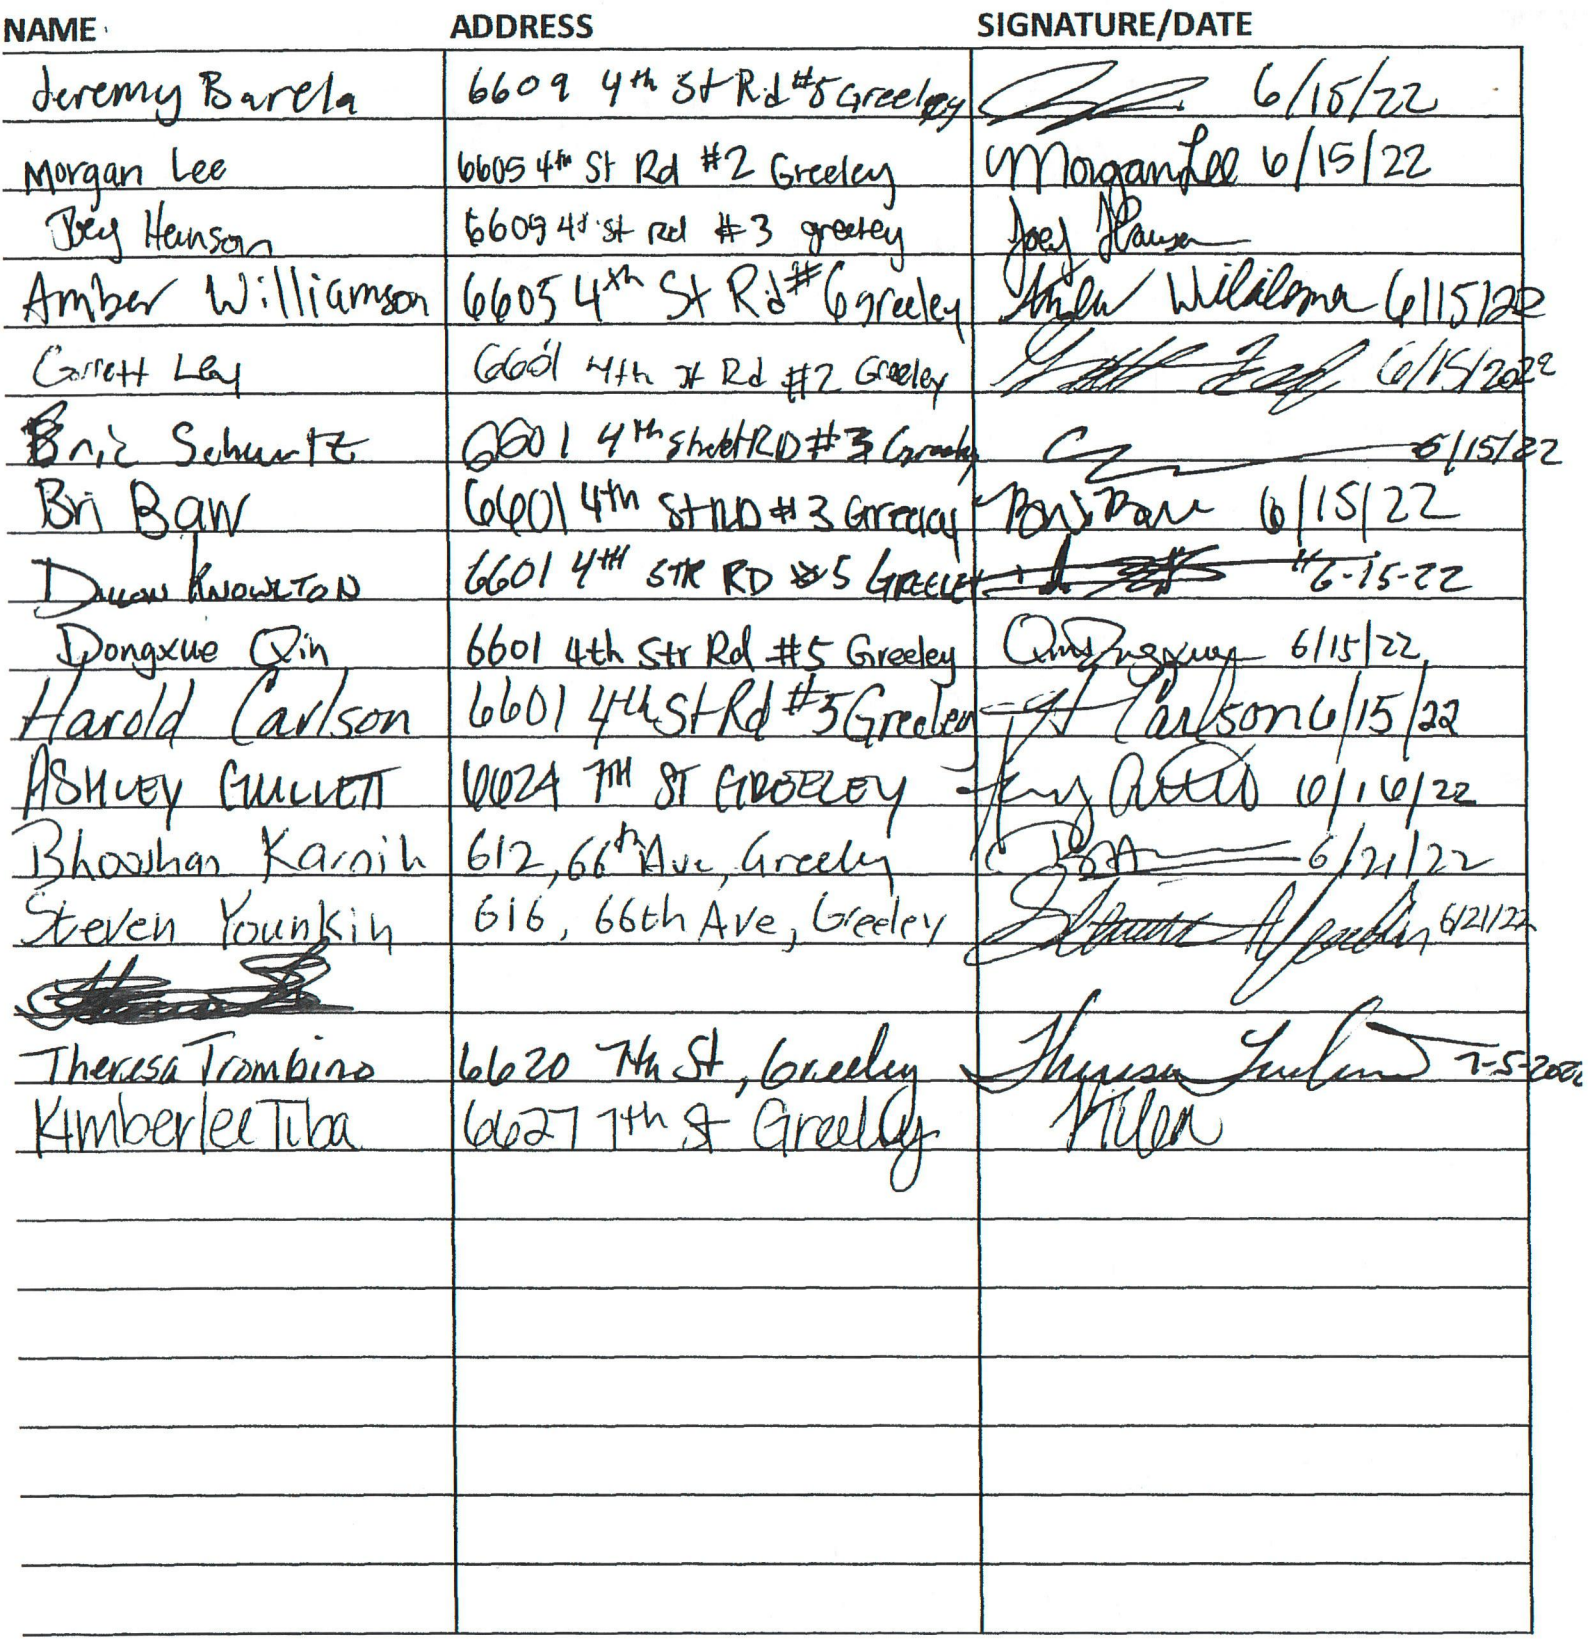 NAME ADDRESS SIGNATURE/DATE
Jeremy Barela 6609 4th St Rd #5 Greeley 6/15/22
Morgan Lee 6605 4th St Rd #2 Greeley Morgan Lee 6/15/22
Joey Hanson 6609 4th St Rd #3 greeley Joey
Amber Williamson 6605 4th St Rd #6 greeley 6/15/22
Garrett Ley 6601 4th St Rd #2 Greeley 6/15/2022
Eric Schwartz 6601 4th Street RD #3 Greeley 6/15/22
Bri 6601 4th St RD #3 Greeley Bri 6/15/22
KNOWLTON 6601 4TH STR RD #5 GREELEY 6-15-22
Dongxue Qin 6601 4th Str Rd #5 Greeley 6/15/22
Harold Carlson 6601 4th St Rd #5 Greeley H Carlson 6/15/22
ASHLEY 6624 7TH ST GREELEY 6/16/22
Karnik 612, 66th Ave, Greeley 6/21/22
Steven Younkin 616, 66th Ave, Greeley 6/21/22
Theresa Trombino 6620 7th St, Greeley Theresa 7-5-2022
Kimberlee Tiba 6627 7th St Greeley